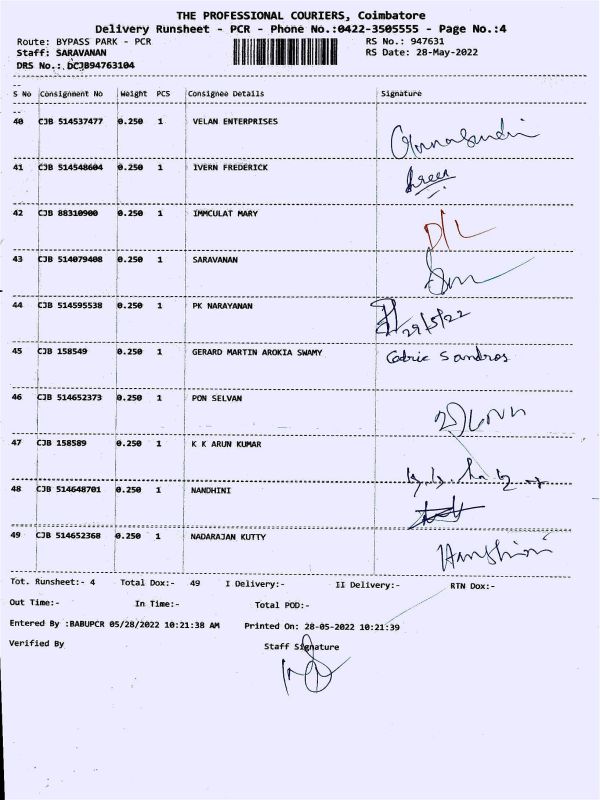 THE PROFESSIONAL COURIERS, Coimbatore
Delivery Runsheet - PCR - Phone No.:0422-3505555 - Page No.:4
Route: BYPASS PARK - PCR RS No.: 947631
Staff: SARAVANAN RS Date: 28-May-2022
DRS No.: DCJB94763104
S No Consignment No Weight PCS Consignee Details Signature
40 CJB 514537477 0.250 1 VELAN ENTERPRISES
41 CJB 514548604 0.250 1 IVERN FREDERICK
42 CJB 88310900 0.250 1 IMMCULAT MARY D/L
43 CJB 514079408 0.250 1 SARAVANAN
44 CJB 514595538 0.250 1 PK NARAYANAN 29/5/22
45 CJB 158549 0.250 1 GERARD MARTIN AROKIA SWAMY Cedric Sandros
46 CJB 514652373 0.250 1 PON SELVAN
47 CJB 158589 0.250 1 K K ARUN KUMAR
48 CJB 514648701 0.250 1 NANDHINI
49 CJB 514652368 0.250 1 NADARAJAN KUTTY
Tot. Runsheet:- 4 Total Dox:- 49 I Delivery:- II Delivery:- RTN Dox:-
Out Time:- In Time:- Total POD:-
Entered By :BABUPCR 05/28/2022 10:21:38 AM Printed On: 28-05-2022 10:21:39
Verified By Staff Signature